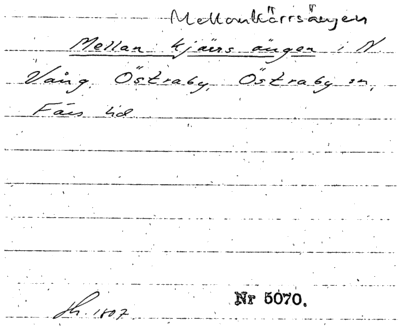 Mellankärrsängen
Mellan kjärrs ängen i N
Vång. Östraby, Östraby sn,
Färs hd
Sk. 1807
Nr 5070.